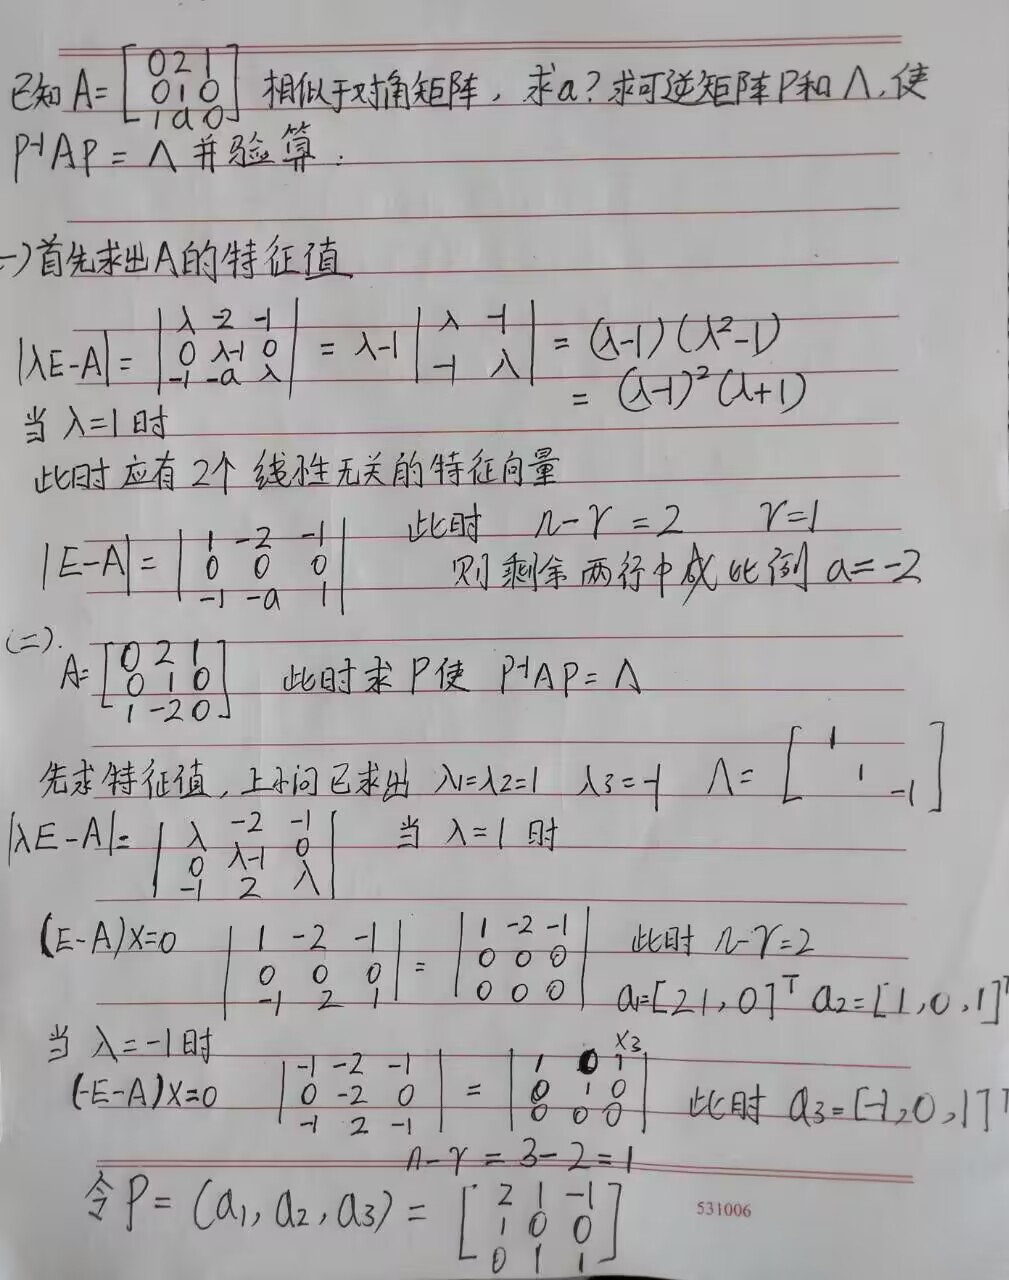 已知 A= [0 2 1
0 1 0
1 a 0] 相似于对角矩阵, 求a? 求可逆矩阵P和Λ,使
P⁻¹AP = Λ 并验算.
一)首先求出A的特征值
|λE-A| = |λ -2 -1
0 λ-1 0
-1 -a λ| = λ-1 |λ -1
-1 λ| = (λ-1)(λ²-1)
= (λ-1)²(λ+1)
当 λ=1时
此时应有2个线性无关的特征向量
此时 n-r=2 r=1
|E-A| = |1 -2 -1
0 0 0
-1 -a 1| 则剩余两行中成比例 a=-2
(二).
A= [0 2 1
0 1 0
1 -2 0] 此时求P使 P⁻¹AP=Λ
先求特征值,上小问已求出 λ1=λ2=1 λ3=-1 Λ= [1
1
-1]
|λE-A|= |λ -2 -1
0 λ-1 0
-1 2 λ| 当 λ=1时
(E-A)X=0 |1 -2 -1
0 0 0
-1 2 1| = |1 -2 -1
0 0 0
0 0 0| 此时 n-r=2
a1=[2 1,0]ᵀ a2=[1,0,1]ᵀ
当 λ=-1时
(-E-A)X=0 |-1 -2 -1
0 -2 0
-1 2 -1| = |1 0 1
0 1 0
0 0 0| x3 此时 a3=[-1,0,1]ᵀ
n-r=3-2=1
令P=(a1,a2,a3)= [2 1 -1
1 0 0
0 1 1]
531006